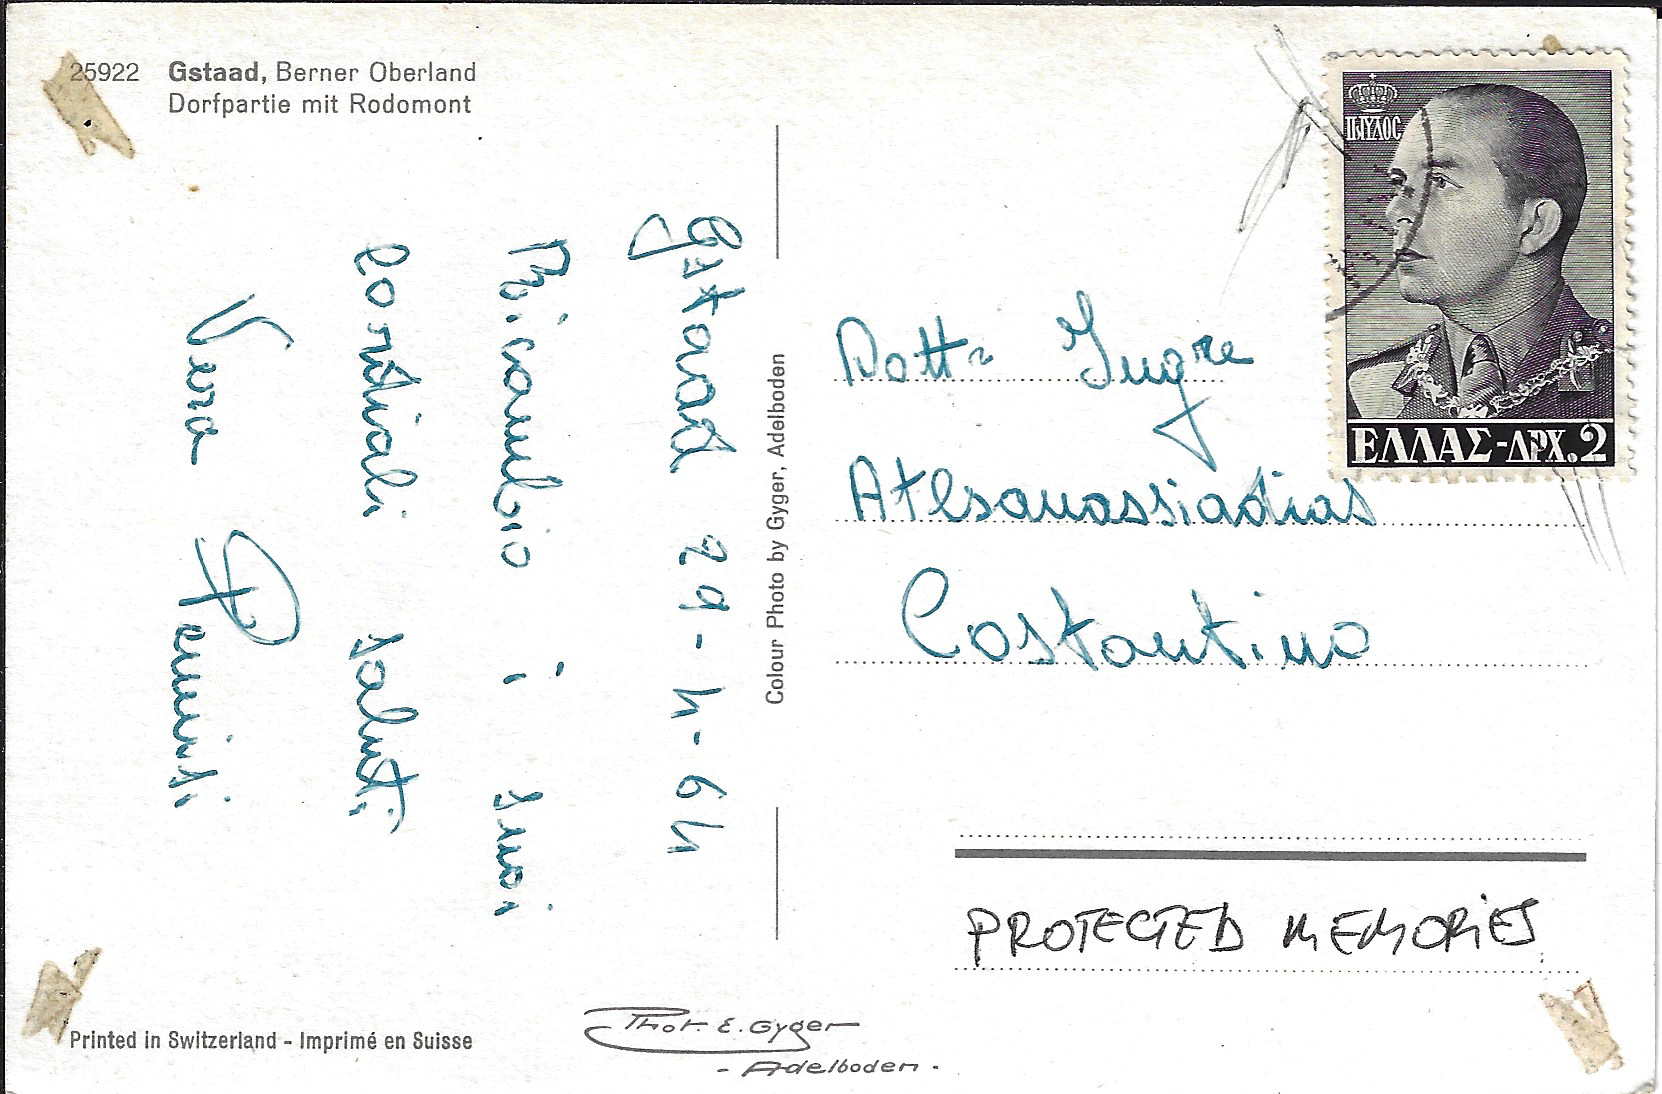 25922 Gstaad, Berner Oberland
Dorfpartie mit Rodomont
Gstaad 29-4-64
Ricambio i suoi
cordiali saluti
Vera
Colour Photo by Gyger, Adelboden
ΠΑΥΛΟΣ
ΕΛΛΑΣ-ΔΡΧ.2
Dott.
Costantino
PROTECTED MEMORIES
Printed in Switzerland - Imprimé en Suisse
Phot. E. Gyger
- Adelboden -